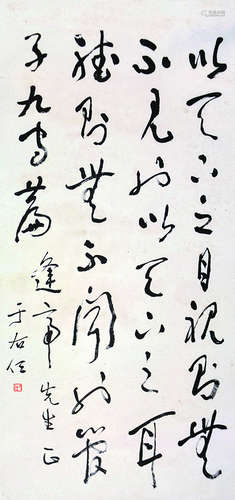 以天下之目視則無
不見也以天下之耳
聽則無不聞也管
子九守篇
逢 先生正
于右任